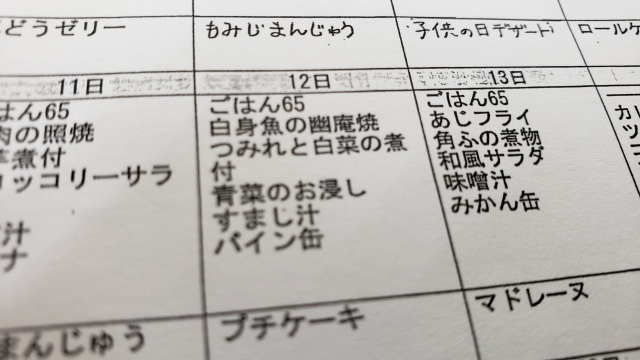 どうゼリー
もみじまんじゅう
子供の日デザート
ロールケ
11日
12日
13日
はん65
肉の照焼
煮付
ロッコリーサラ
汁
ナ
ごはん65
白身魚の幽庵焼
つみれと白菜の煮
付
青菜のお浸し
すまし汁
パイン缶
ごはん65
あじフライ
角ふの煮物
和風サラダ
味噌汁
みかん缶
カレ
まんじゅう
プチケーキ
マドレーヌ